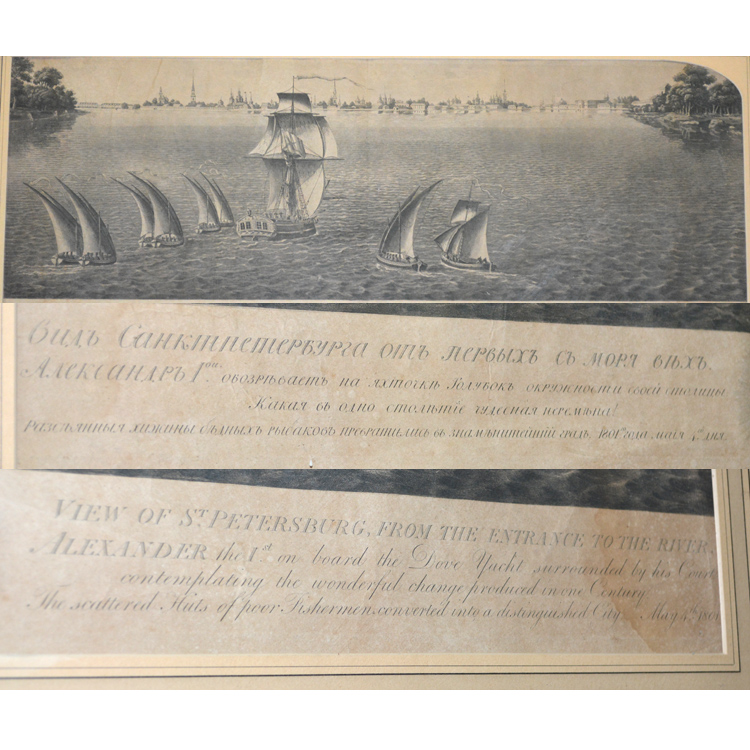 Видъ Санктпетербурга отъ первыхъ съ моря вѣхъ.
Александръ Iой обозрѣваетъ на яхточкѣ Голубокъ окружности своей столицы
Какая въ одно столѣтіе чудесная перемѣна!
Разсѣянныя хижины бѣдныхъ рыбаковъ превратились въ знаменитѣйшій градъ. 1801го года маія 4го дня.
VIEW OF ST. PETERSBURG, FROM THE ENTRANCE TO THE RIVER,
ALEXANDER the Ist on board the Dove Yacht surrounded by his Court
contemplating the wonderful change produced in one Century
The scattered Huts of poor Fishermen converted into a distinguished City. May 4th 1801